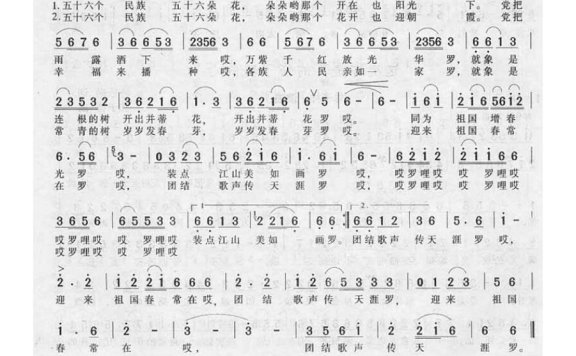 1.五十六个 民族 五十六朵 花， 朵朵哟那个 开在 也 阳光 下。 党把
2.五十六个 民族 五十六朵 花， 朵朵哟那个 花开 也 迎朝 霞。 党把
5676 | 36653 | 2356 3 | 66 | 5676 | 36653 | 2353 | 6613
雨露洒下 来 哎， 万紫千红 放光 华 罗， 就象 是
幸福来播 种 哎， 各族人民 亲如一 家 罗， 就象 是
23532 | 36216 | 1·3 | 36216 | 6 5 | 6- | 6- | 161 | 216 5612
连 根的树 开出并蒂 花， 开出并蒂 花 罗 哎。 同为 祖国 增春
常 青的树 岁岁发春 芽， 岁岁发春 芽 罗 哎。 迎来 祖国 春常
6·56 | 3- | 0323 | 56216 | 1·61 | 6- | 6212 | 6212
光 罗 哎， 装点 江山美如 画 罗 哎， 哎罗哩哎 哎罗哩哎
在 罗 哎， 团结 歌声传天 涯 罗 哎， 哎罗哩哎 哎罗哩哎
3656 | 65533 | 6613 | 2216 | 66· | 6612 | 36 | 5·6 | 1-
1. 2.
哎罗哩哎 哎 罗哩哎 装点江山 美如 画罗。 团结歌声 传天 涯 罗 哎，
哎罗哩哎 哎 罗哩哎，
2·2 | 1221 | 666 | 2·2 | 1212 | 36533 | 0123 | 56
迎 来 祖国春 常在哎， 团 结 歌声传 天涯罗， 迎来 祖国
1·6 | 2- | 3- | 3- | 3561 | 3612 | 216 | 6- | 6-
春 常 在 哎， 团结歌声 传天 涯 罗。